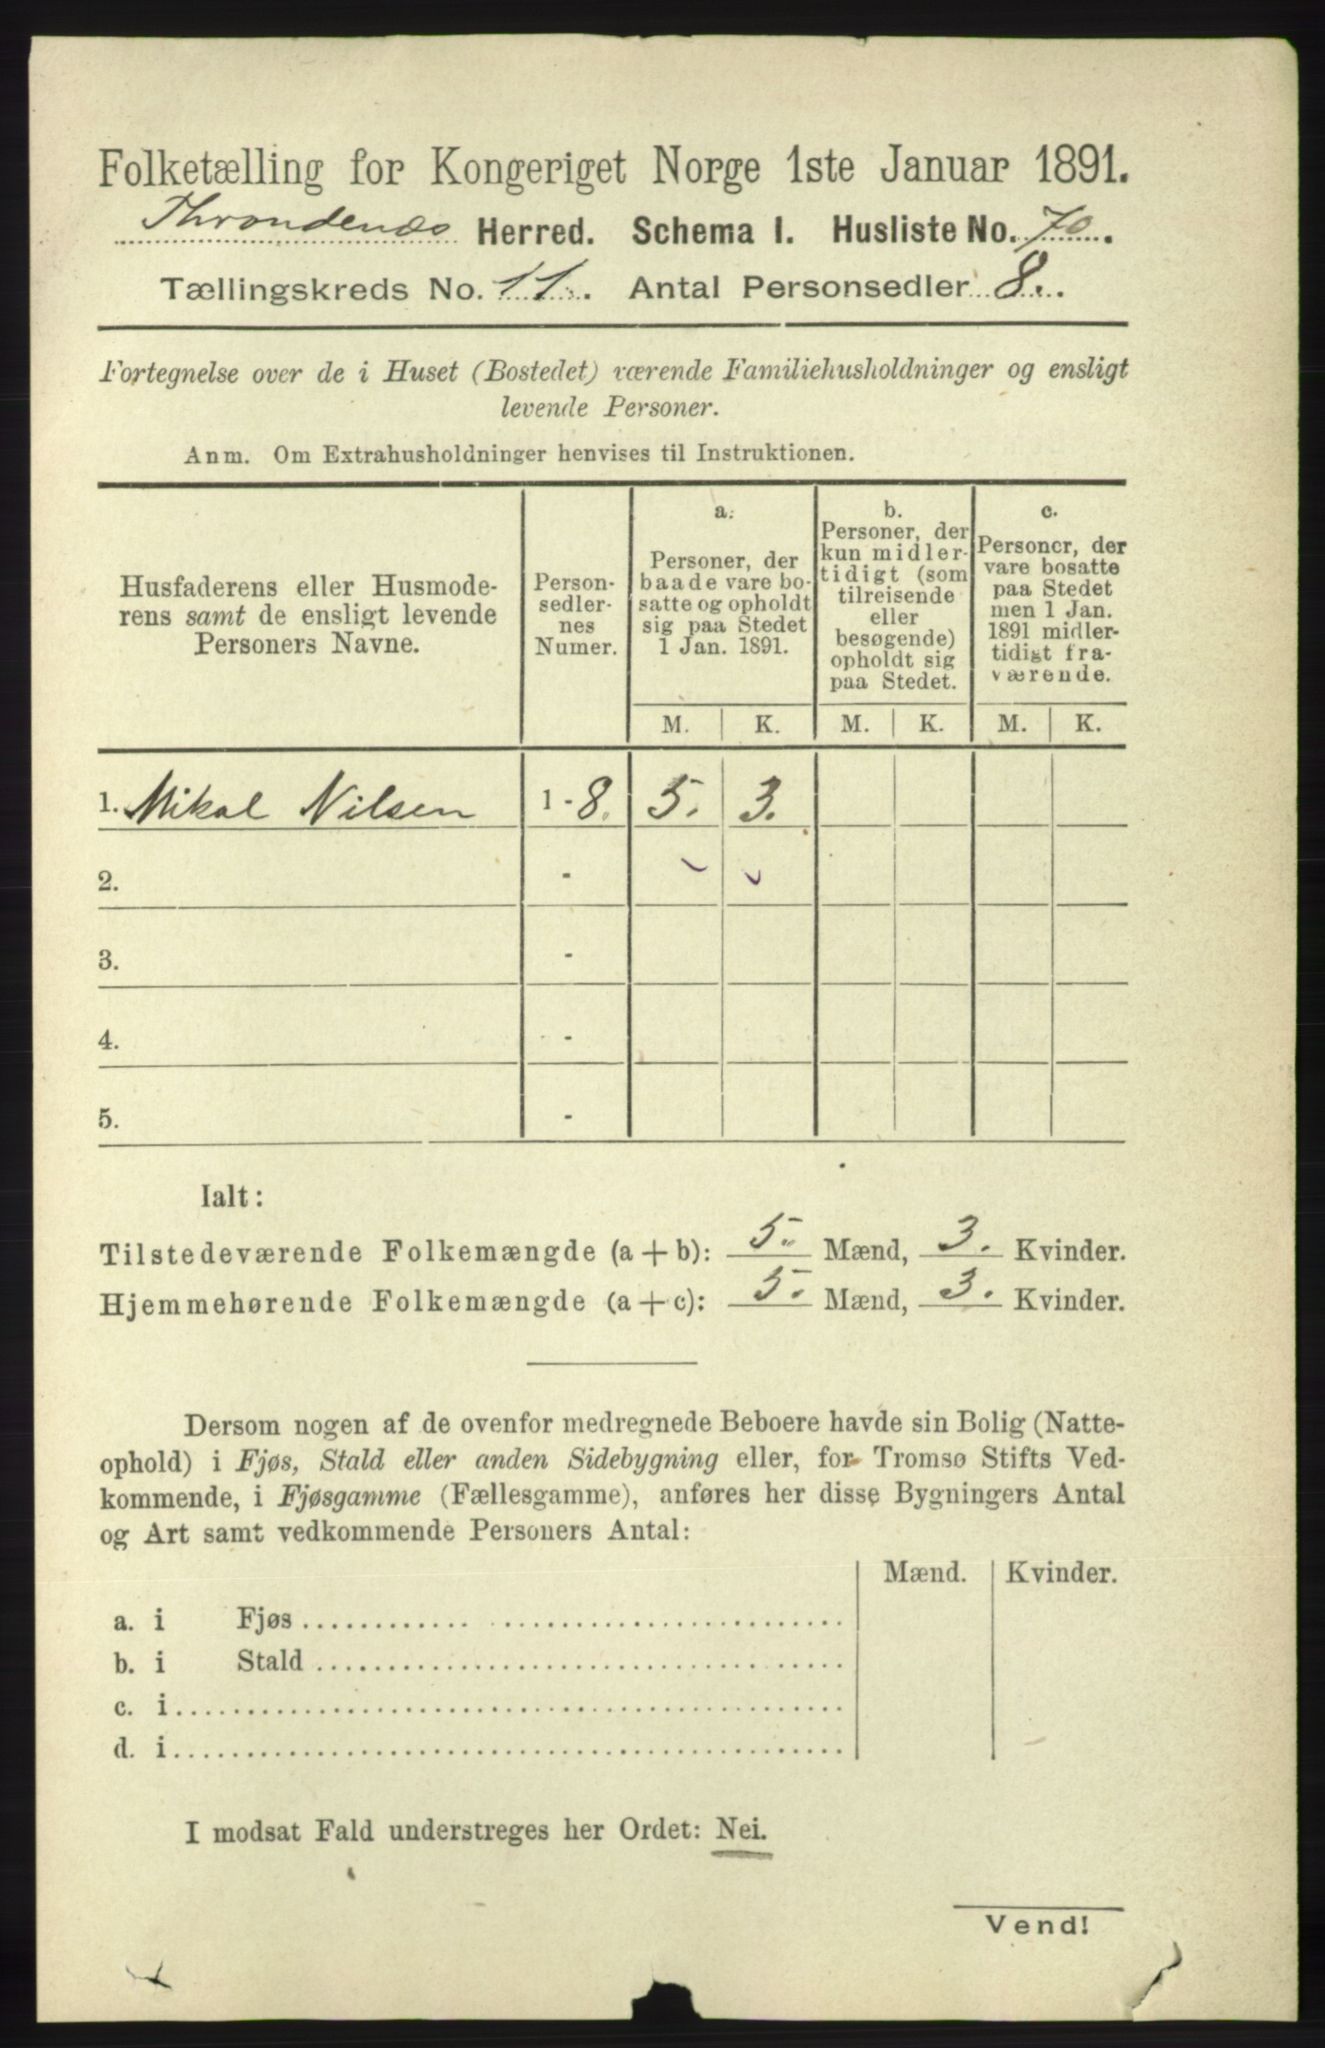 Folketælling for Kongeriget Norge 1ste Januar 1891.
Throndenæs Herred. Schema I. Husliste No. 70.
Tællingskreds No. 11. Antal Personsedler 8.
Fortegnelse over de i Huset (Bostedet) værende Familiehusholdninger og ensligt
levende Personer.
Anm. Om Extrahusholdninger henvises til Instruktionen.
Husfaderens eller Husmode-
rens samt de ensligt levende
Personers Navne.
Person-
sedler-
nes
Numer.
a.
Personer, der
baade vare bo-
satte og opholdt
sig paa Stedet
1 Jan. 1891.
b.
Personer, der
kun midler-
tidigt (som
tilreisende
eller
besøgende)
opholdt sig
paa Stedet.
c.
Personer, der
vare bosatte
paa Stedet
men 1 Jan.
1891 midler-
tidigt fra-
værende.
M. K. M. K. M. K.
1. Mikal Nilsen 1 - 8. 5. 3.
2. -
3. -
4. -
5. -
Ialt:
Tilstedeværende Folkemængde (a + b): 5. Mænd, 3. Kvinder.
Hjemmehørende Folkemængde (a + c): 5. Mænd, 3. Kvinder.
Dersom nogen af de ovenfor medregnede Beboere havde sin Bolig (Natte-
ophold) i Fjøs, Stald eller anden Sidebygning eller, for Tromsø Stifts Ved-
kommende, i Fjøsgamme (Fællesgamme), anføres her disse Bygningers Antal
og Art samt vedkommende Personers Antal:
Mænd. Kvinder.
a. i Fjøs
b. i Stald
c. i
d. i
I modsat Fald understreges her Ordet: Nei.
Vend!